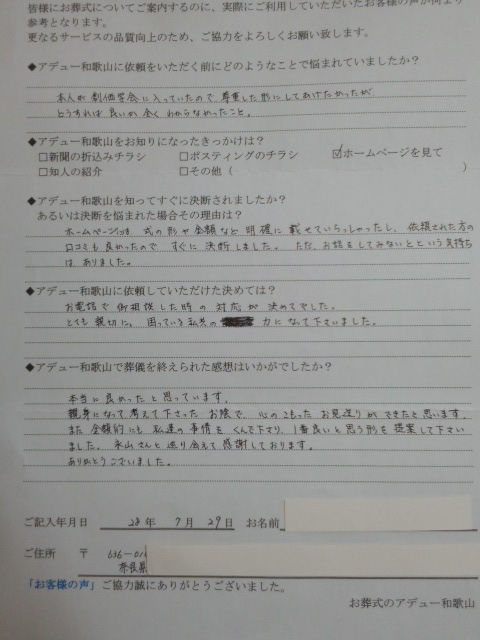 皆様にお葬式についてご案内するのに、実際にご利用していただいたお客様の声が何より
参考となります。
更なるサービスの品質向上のため、ご協力をよろしくお願い致します。
◆アデュー和歌山に依頼をいただく前にどのようなことで悩まれていましたか?
本人が創価学会に入っていたので尊重した形にしてあげたかったが
どうすれば良いか全くわからなかったこと。
◆アデュー和歌山をお知りになったきっかけは?
□新聞の折込みチラシ □ポスティングのチラシ ☑ホームページを見て
□知人の紹介 □その他( )
◆アデュー和歌山を知ってすぐに決断されましたか?
あるいは決断を悩まれた場合その理由は?
ホームページには 式の形や金額など明確に載せていらっしゃったし、依頼された方の
口コミも良かったので すぐに決断しました。ただ、お話をしてみないとという気持ち
は ありました。
◆アデュー和歌山に依頼していただけた決めては?
お電話で御相談した時の対応が決めてでした。
とても親切に、困っている私共の 力になって下さいました。
◆アデュー和歌山で葬儀を終えられた感想はいかがでしたか?
本当に良かったと思っています。
親身になって考えて下さったお陰で、心のこもったお見送りができたと思います。
また金額的にも私達の事情をくんで下さり、1番良いと思う形を提案して下さい
ました。永山さんと巡り会えて感謝しております。
ありがとうございました。
ご記入年月日 28年 7月 29日 お名前
ご住所 〒 636-01
奈良県
「お客様の声」ご協力誠にありがとうございました。
お葬式のアデュー和歌山